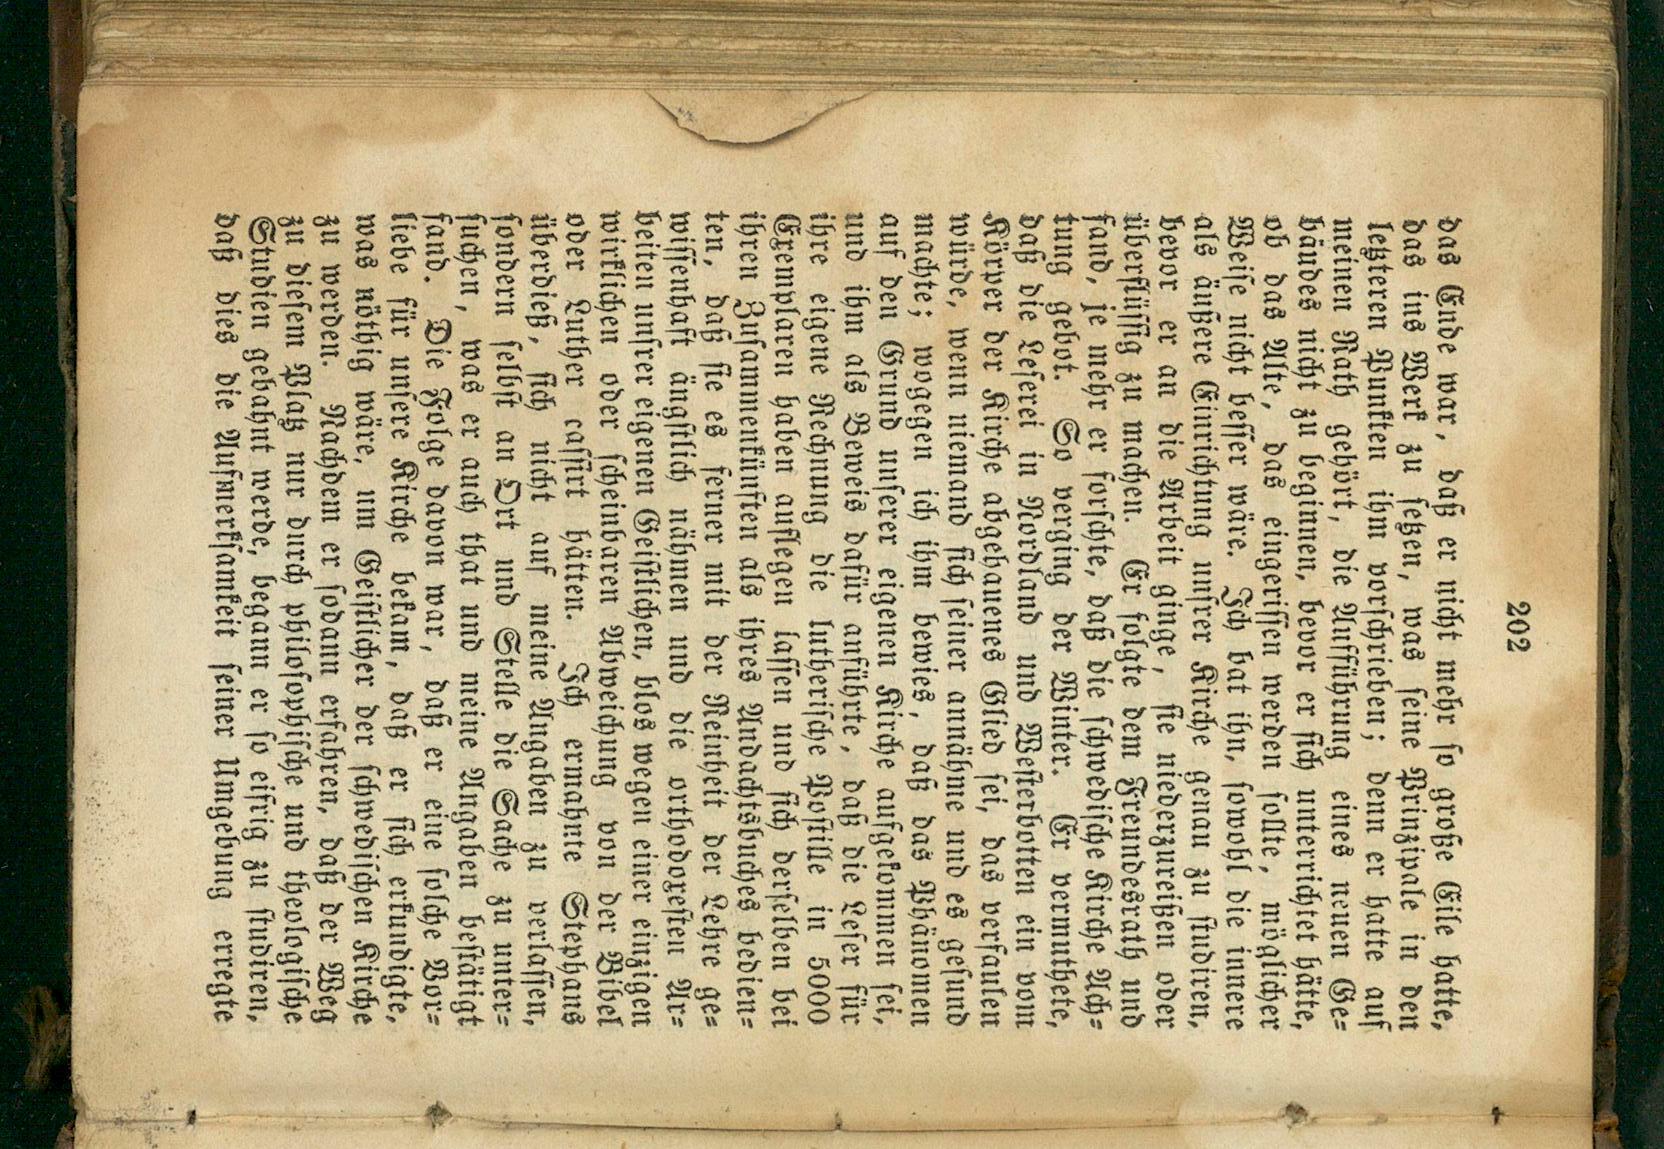 202
das Ende war, daß er nicht mehr so große Eile hatte,
das ins Werk zu setzen, was seine Prinzipale in den
letzteren Punkten ihm vorschrieben; denn er hatte auf
meinen Rath gehört, die Aufführung eines neuen Ge=
bäudes nicht zu beginnen, bevor er sich unterrichtet hätte,
ob das Alte, das eingerissen werden sollte, möglicher
Weise nicht besser wäre. Ich bat ihn, sowohl die innere
als äußere Einrichtung unsrer Kirche genau zu studiren,
bevor er an die Arbeit ginge, sie niederzureißen oder
überflüssig zu machen. Er folgte dem Freundesrath und
fand, je mehr er forschte, daß die schwedische Kirche Ach=
tung gebot. So verging der Winter. Er vermuthete,
daß die Leserei in Nordland und Westerbotten ein vom
Körper der Kirche abgehauenes Glied sei, das verfaulen
würde, wenn niemand sich seiner annähme und es gesund
machte; wogegen ich ihm bewies, daß das Phänomen
auf den Grund unserer eigenen Kirche aufgekommen sei,
und ihm als Beweis dafür anführte, daß die Leser für
ihre eigene Rechnung die lutherische Postille in 5000
Exemplaren haben auflegen lassen und sich derselben bei
ihren Zusammenkünften als ihres Andachtsbuches bedien=
ten, daß sie es ferner mit der Reinheit der Lehre ge=
wissenhaft ängstlich nähmen und die orthodoxesten Ar=
beiten unsrer eigenen Geistlichen, blos wegen einer einzigen
wirklichen oder scheinbaren Abweichung von der Bibel
oder Luther cassirt hätten. Ich ermahnte Stephans
überdieß, sich nicht auf meine Angaben zu verlassen,
sondern selbst an Ort und Stelle die Sache zu unter=
suchen, was er auch that und meine Angaben bestätigt
fand. Die Folge davon war, daß er eine solche Vor=
liebe für unsere Kirche bekam, daß er sich erkundigte,
was nöthig wäre, um Geistlicher der schwedischen Kirche
zu werden. Nachdem er sodann erfahren, daß der Weg
zu diesem Platz nur durch philosophische und theologische
Studien gebahnt werde, begann er so eifrig zu studiren,
daß dies die Aufmerksamkeit seiner Umgebung erregte